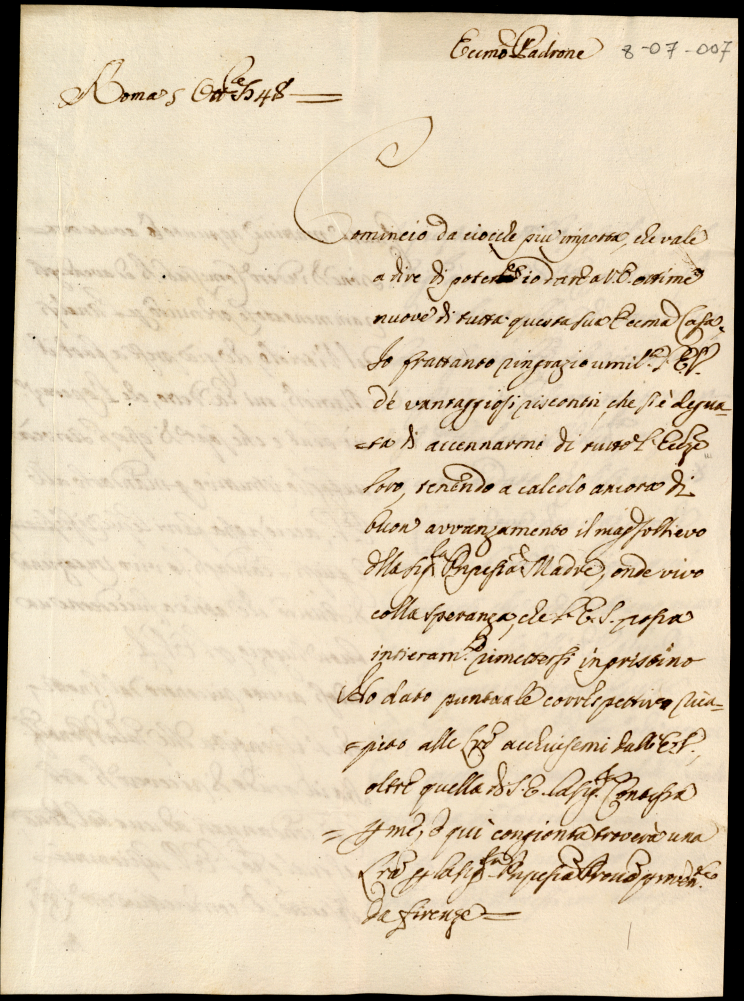 Eccmo Padrone 8-07-007
Roma 5 Ottbre 1748
Comincio da ciocche più importa, che vale
a dire di poter io dare a V.E. ottime
nuove di tutta questa sua Eccma Casa.
Io frattanto ringrazio umilte l'E.V.
de vantaggiosi riscontri che si è degna-
=ta di accennarmi di tutte l'Ecclze
loro, tenendo a calcolo ancora di
buon avvanzamento il magr sollievo
della sigra Pnpessa Madre, onde vivo
colla speranza, che l'E.S. possa
intieramte rimettersi in pristino
Ho dato puntuale correspettivo rica-
=pito alle Lre acchiusemi dall'E.V.,
oltre quella di S.E. la sigra Contessa
=
me, e qui congionta troverà una
Lra per la sigra Pnpessa
da Firenze